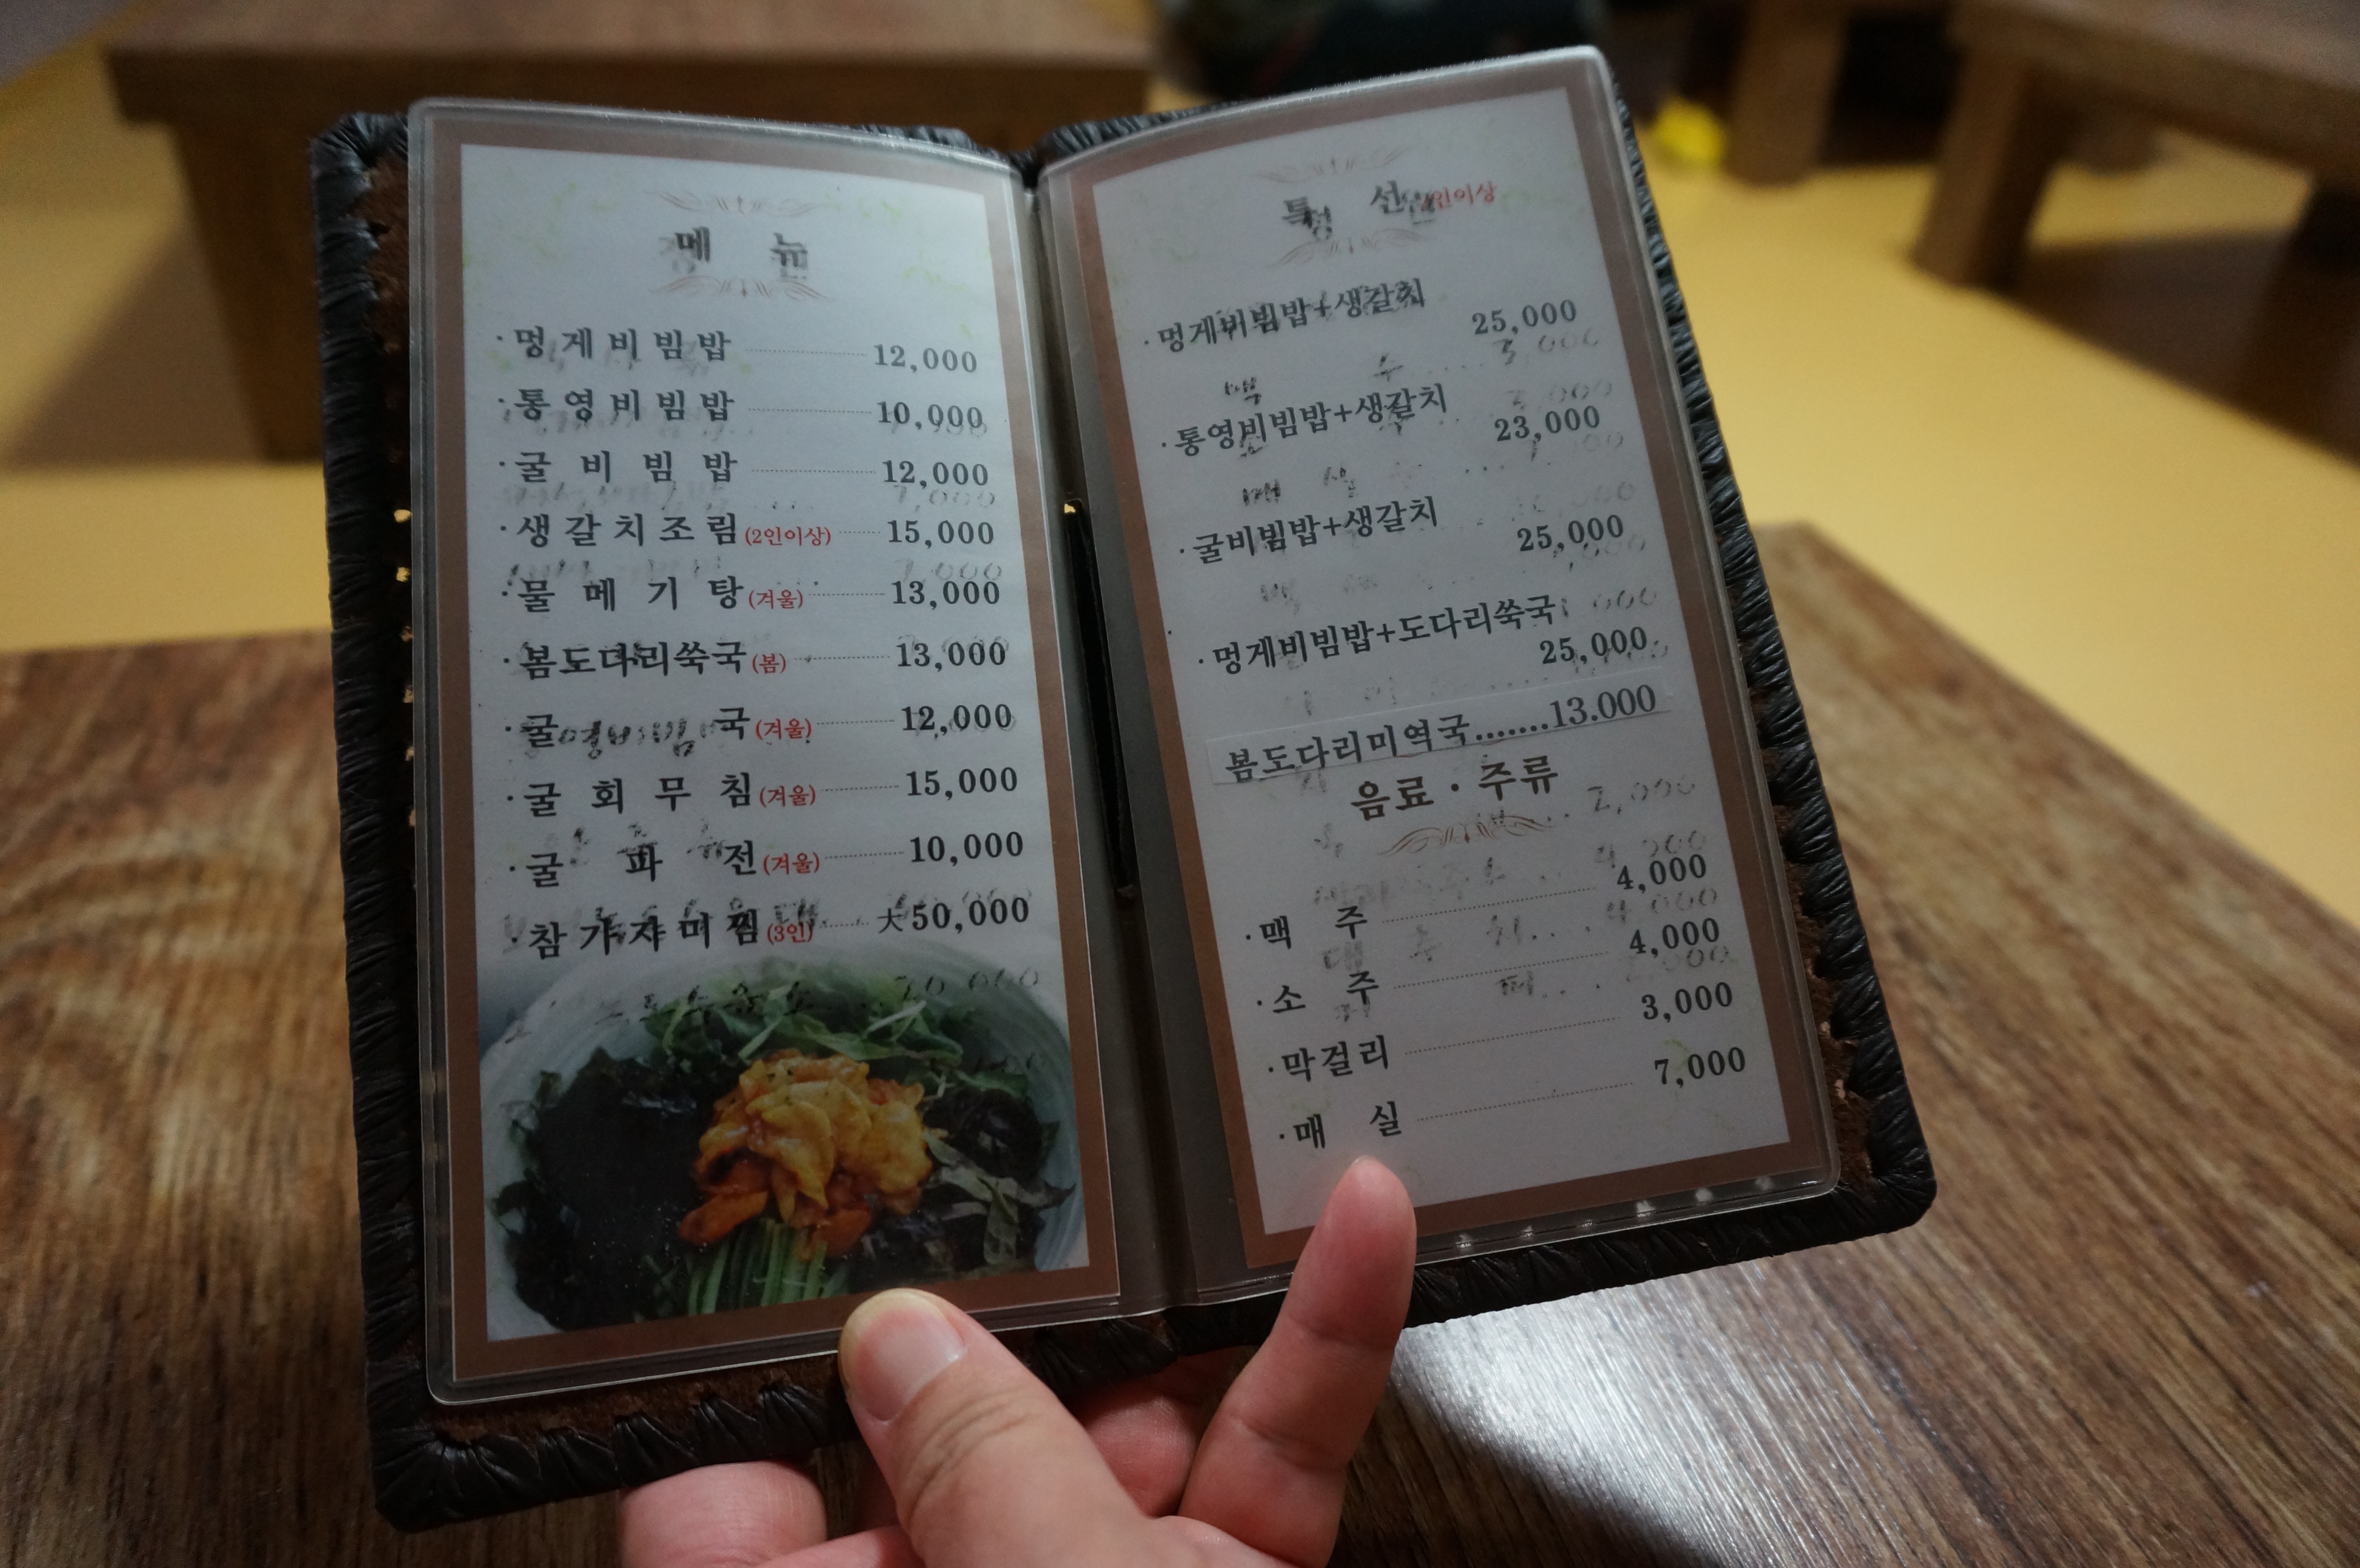 메 뉴
· 멍게비빔밥 12,000
· 통영비빔밥 10,000
· 굴비빔밥 12,000
· 생갈치조림(2인이상) 15,000
· 물메기탕(겨울) 13,000
· 봄도다리쑥국(봄) 13,000
· 굴국(겨울) 12,000
· 굴회무침(겨울) 15,000
· 굴파전(겨울) 10,000
· 참가자미찜(3인) 大50,000
특 선
· 멍게비빔밥+생갈치
25,000
· 통영비빔밥+생갈치
23,000
· 굴비빔밥+생갈치
25,000
· 멍게비빔밥+도다리쑥국
25,000
봄도다리미역국.......13.000
음료 · 주류
· 맥주 4,000
· 소주 4,000
· 막걸리 3,000
· 매실 7,000